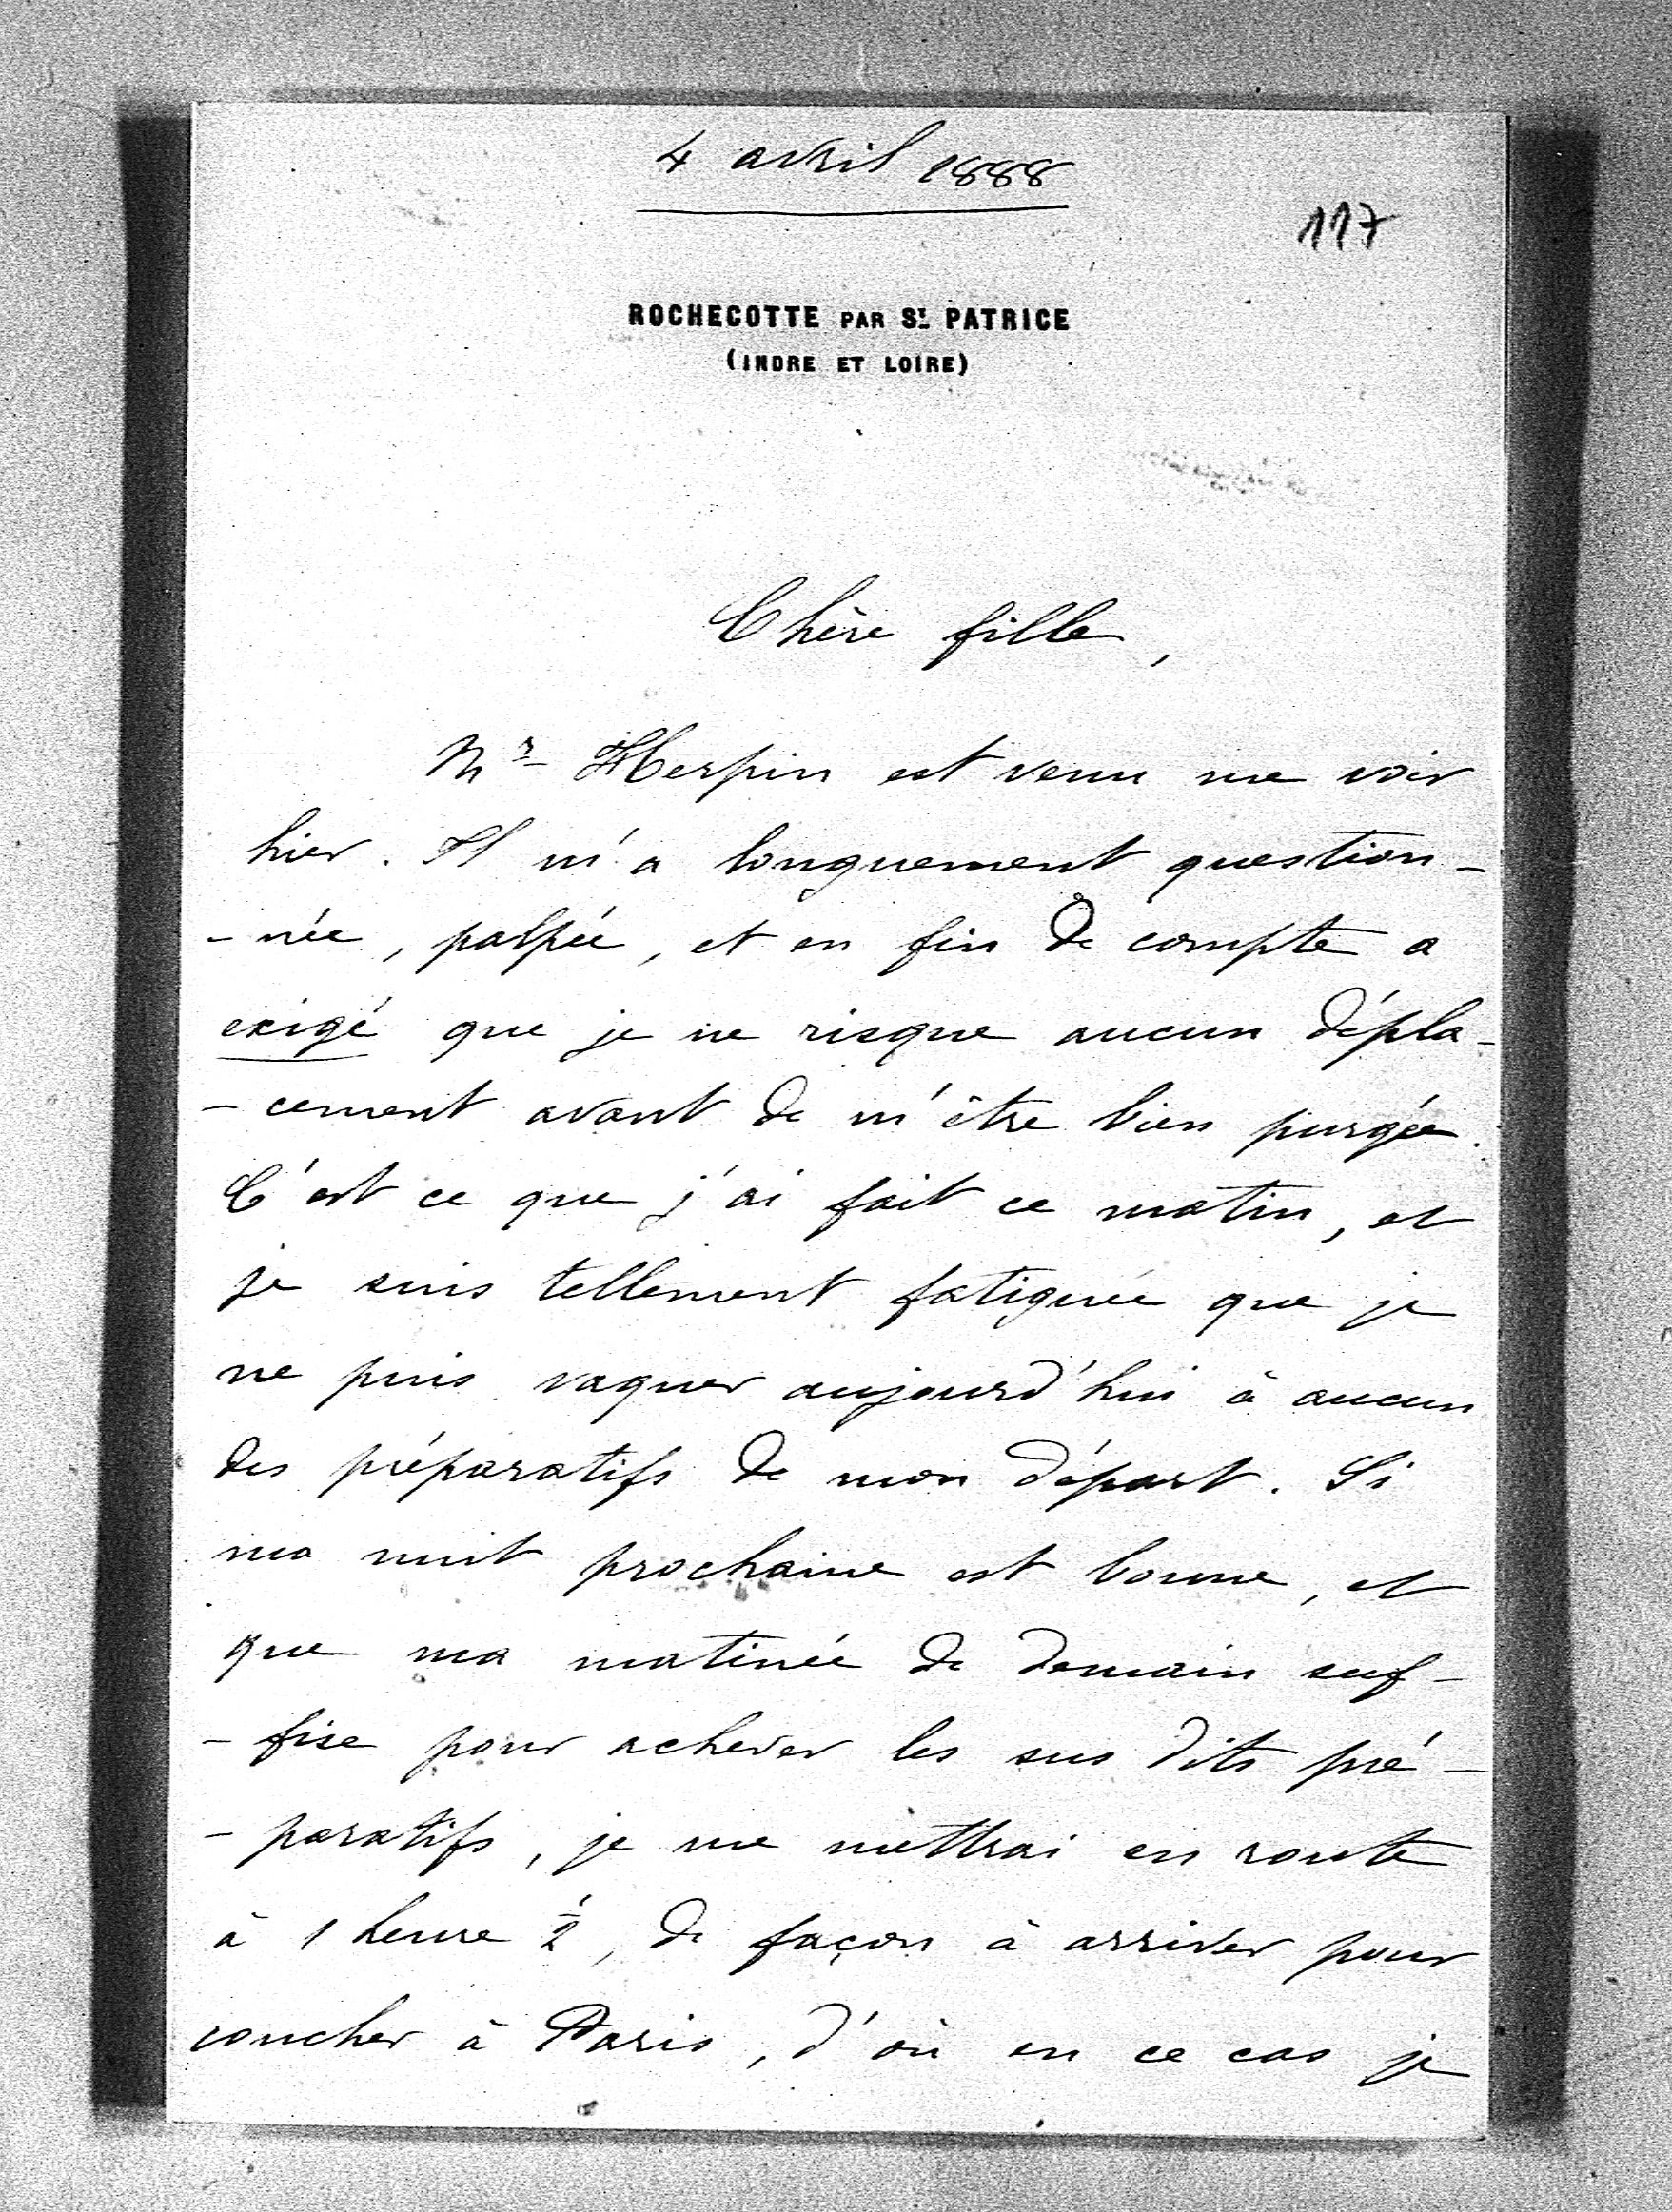 4 avril 1888
117
ROCHECOTTE PAR ST PATRICE
(INDRE ET LOIRE)
Chère fille,
Mr Herpin est venu me voir
hier. Il m'a longuement question-
-née, palpée, et en fin de compte a
exigé que je ne risque aucun dépla-
-cement avant de m'être bien purgée.
C'est ce que j'ai fait ce matin, et
je suis tellement fatiguée que je
ne puis vaquer aujourd'hui à aucun
des préparatifs de mon départ. Si
ma nuit prochaine est bonne, et
que ma matinée de demain suf-
-fise pour achever les sus dits pré-
-paratifs, je me mettrai en route
à 1 heure ½, de façon à arriver pour
coucher à Paris, d'où en ce cas je